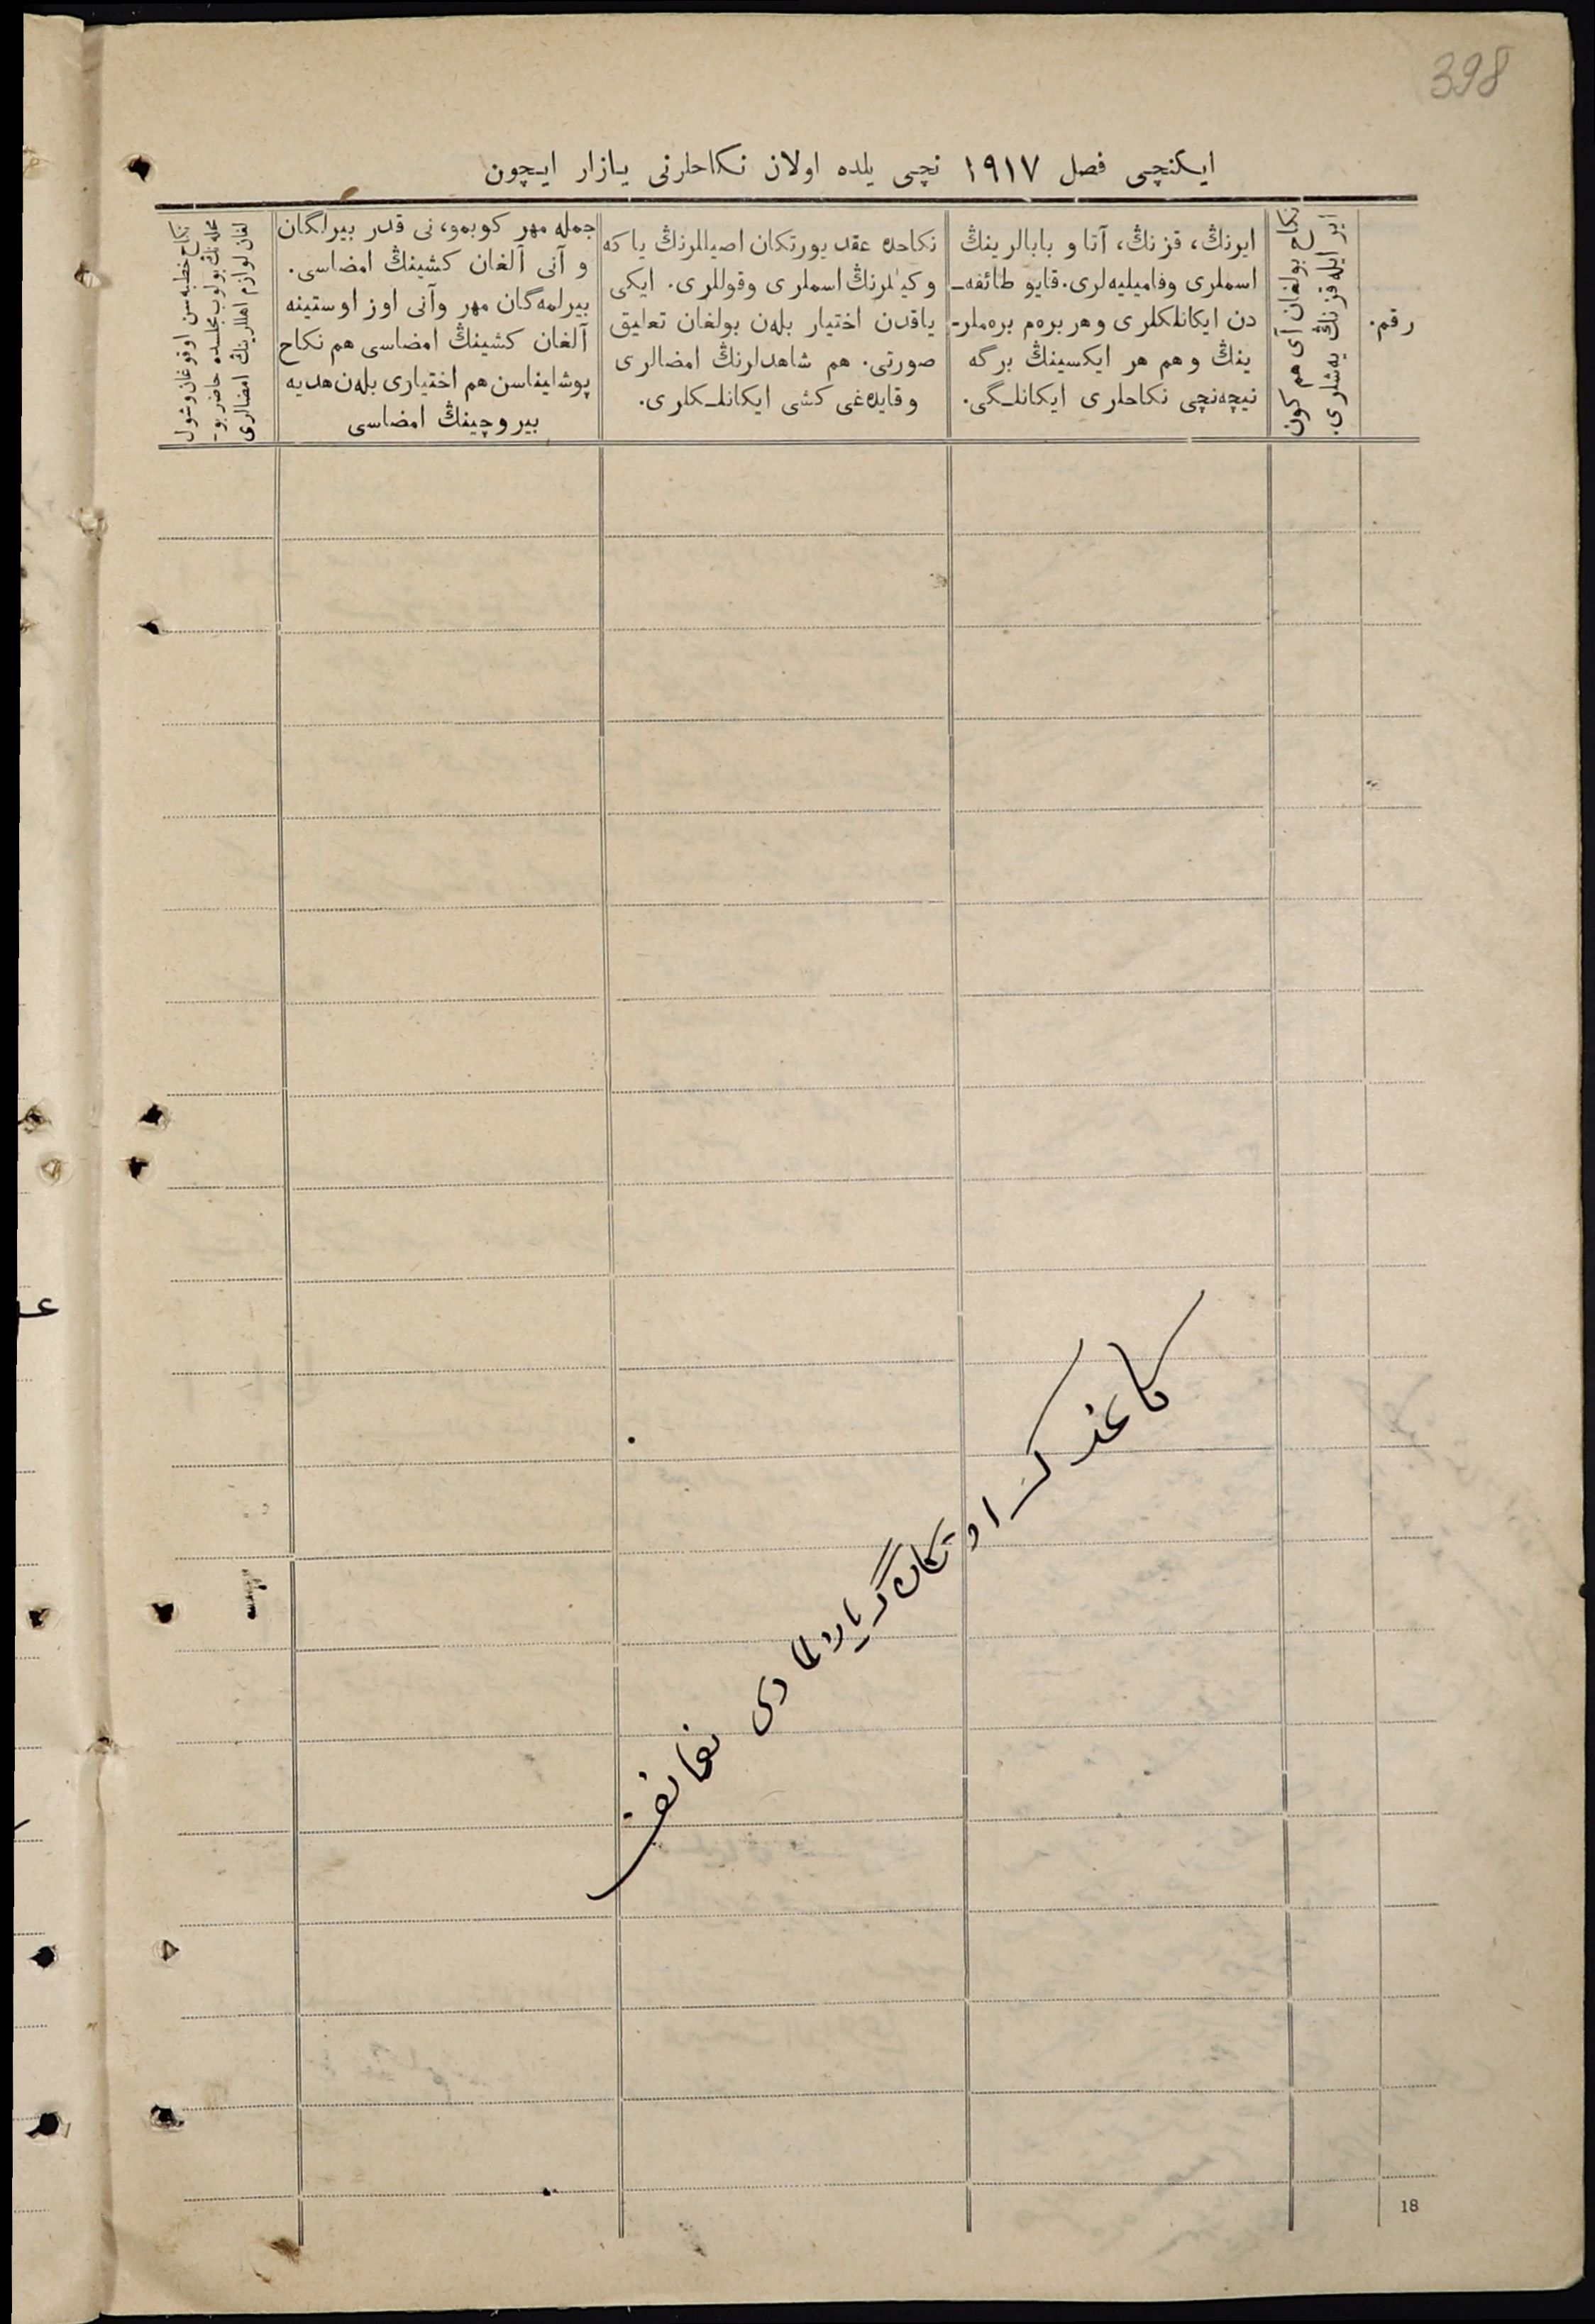 398
ایکنچی فصل ١٩١٧ نچی یلده اولان نکاحلرنی یازار ایچون
رقم.
نکاح بولغان آی هم کون
ایر ایله قزنڭ یه‌شلری.
ایرنڭ، قزنڭ، آتا و بابالرینڭ
اسملری وفامیلیه‌لری. قایو طائفه‌ـ
دن ایکانلکلری و هر بره‌م بره‌ملرـ
ینڭ و هم هر ایکسینڭ برگه
نیچه‌نچی نکاحلری ایکانلـگی.
نکاحده عقد یورتکان اصیللرنڭ یا که
وکیللرنڭ اسملری وقوللری. ایکی
یاقدن اختیار بله‌ن بولغان تعلیق
صورتی. هم شاهدلرنڭ امضالری
و قایده‌غی کشی ایکانلـکلری.
جمله مهر کوبمو، نی قدر بیرلگان
و آنی آلغان کشینڭ امضاسی.
بیرلمه‌گان مهر وآنی اوز اوستینه
آلغان کشینڭ امضاسی هم نکاح
پوشلیناسن هم اختیاری بله‌ن هدیه
بیروچینڭ امضاسی
نکاح خطبه‌سن اوقوغان وشول
محله‌نڭ بولوب مجلسده حاضر بوـ
لغان لوازم اهللرینڭ امضالری
کاغذک اوتکان گه یازلمادی
18